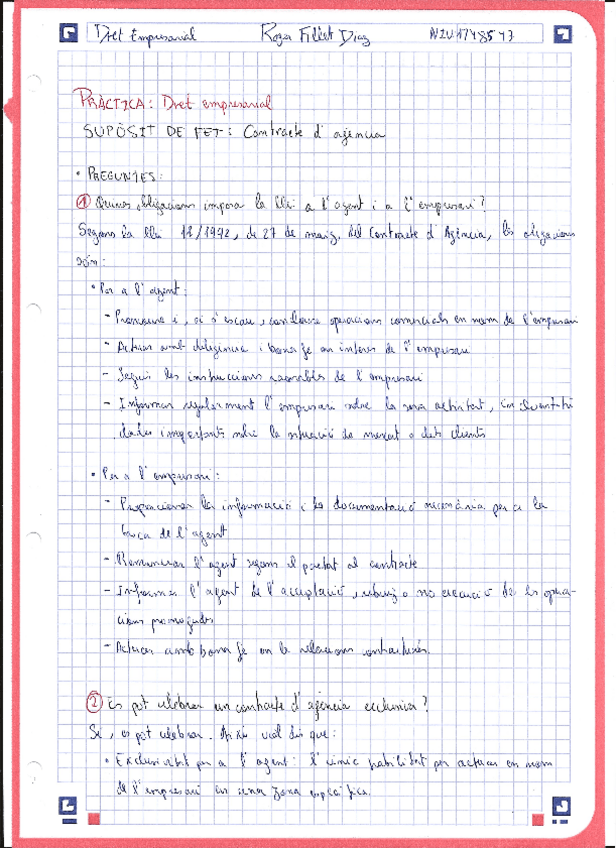 Dret Empresarial Roger Fillet Diaz NIU 1748573
PRÀCTICA: Dret empresarial
SUPÒSIT DE FET: Contracte d'agència
• PREGUNTES:
① Quines obligacions imposa la llei a l'agent i a l'empresari?
Segons la llei 12/1992, de 27 de maig, del Contracte d'Agència, les obligacions
són:
• Per a l'agent:
- Promoure i, si s'escau, concloure operacions comercials en nom de l'empresari
- Actuar amb diligència i bona fe en interès de l'empresari
- Seguir les instruccions raonables de l'empresari
- Informar regularment l'empresari sobre la seva activitat,
dades importants sobre la situació de mercat o dels clients
• Per a l'empresari:
- Proporcionar la informació i la documentació necessària per a la
tasca de l'agent
- Remunerar l'agent segons el pactat al contracte
- Informar l'agent de l'acceptació, rebuig o no execució de les opera-
cions promogudes
- Actuar amb bona fe en la relacions contractuals.
② Es pot celebrar un contracte d'agència exclusiva?
Sí, es pot celebrar. Això vol dir que:
• Exclusivitat per a l'agent: l'únic habilitat per actuar en nom
de l'empresari en una zona específica.